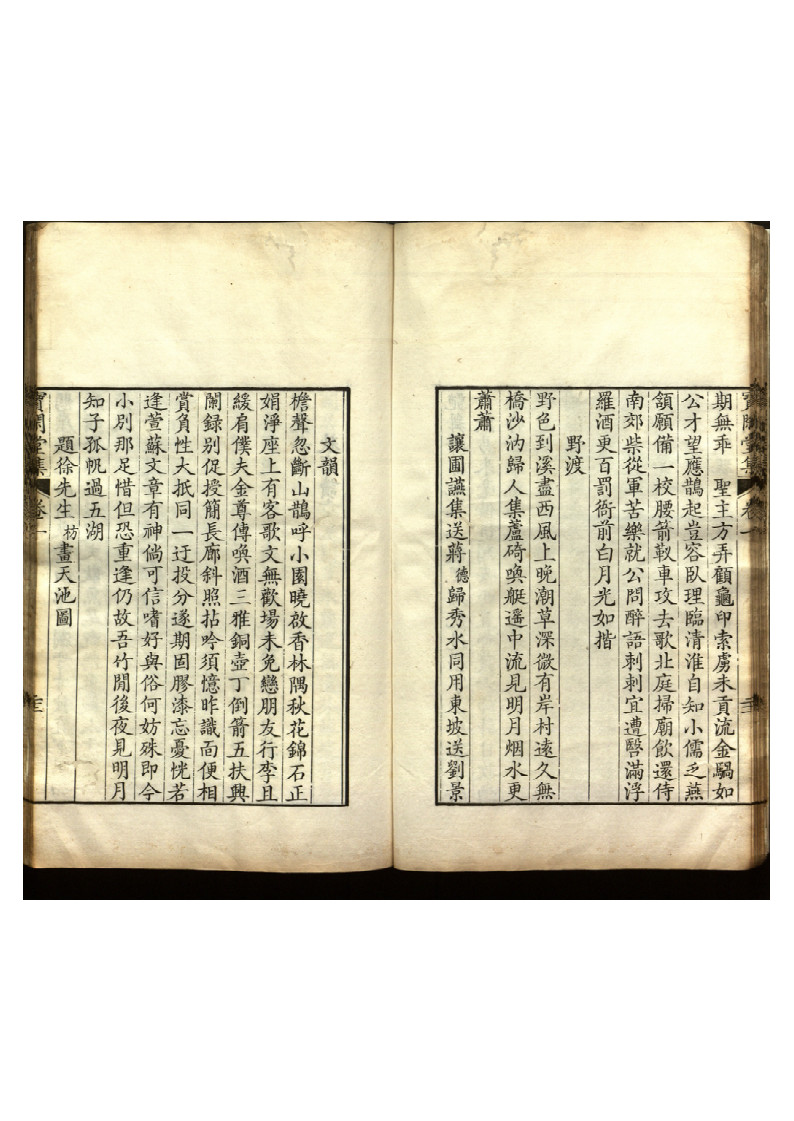 寶閑堂集 卷一
期無乖 聖主方弄顧龜印索虜未貢流金騧如
公才望應鵲起豈容臥理臨清淮自知小儒乏燕
頷願備一校腰箭靫車攻去歌北庭掃廟飲還侍
南郊柴從軍苦樂就公問醉語刺刺宜遭嘦滿浮
羅酒更百罰衙前白月光如揩
野渡
野色到溪盡西風上晚潮草深微有岸村遠久無
橋沙汭歸人集蘆碕喚艇遥中流見明月烟水更
蕭蕭
讓圃讌集送蔣德歸秀水同用東坡送劉景
文韻
檐聲忽斷山鵲呼小園曉啟香林隅秋花錦石正
娟淨座上有客歌文無歡場未免戀朋友行李且
緩肩僕夫金尊傳喚酒三雅銅壺丁倒箭五扶興
闌録别促授簡長廊斜照拈吟須憶昨識面便相
賞負性大抵同一迂投分遂期固膠漆忘憂恍若
逢萱蘇文章有神倘可信嗜好與俗何妨殊即今
小別那足惜但恐重逢仍故吾竹閒後夜見明月
知子孤帆過五湖
題徐先生枋畫天池圖
寶閑堂集 卷一